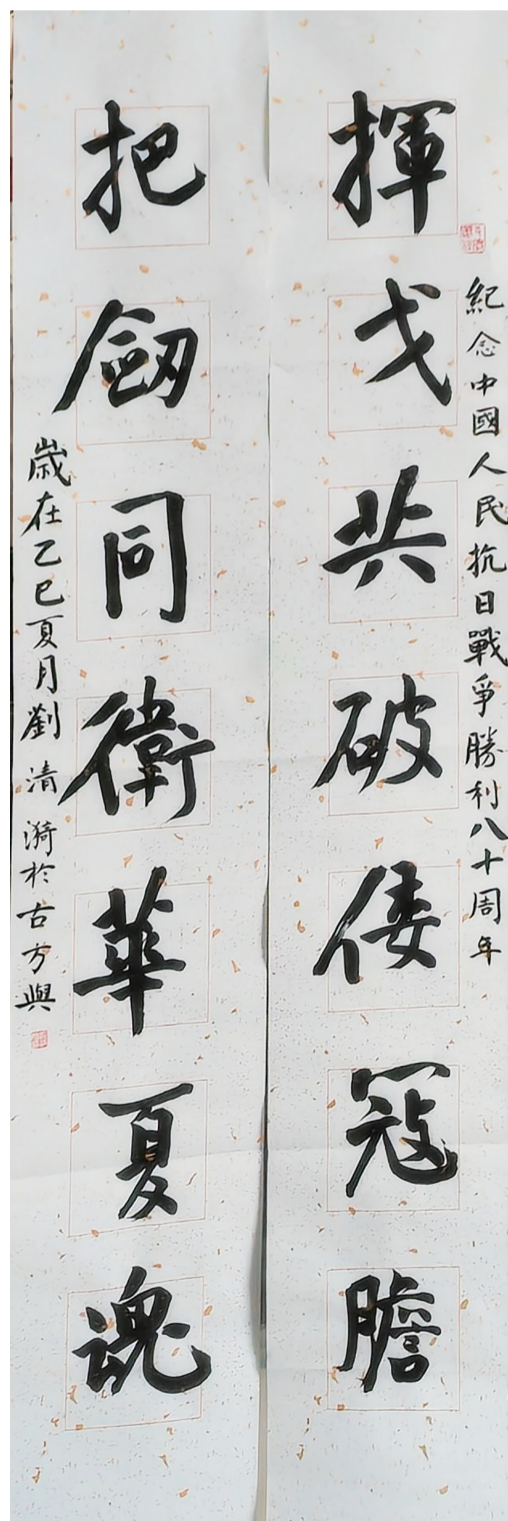 紀念中國人民抗日戰爭勝利八十周年
揮戈共破倭寇膽
把劒同衛華夏魂
歲在乙巳夏月劉清漪於古方與